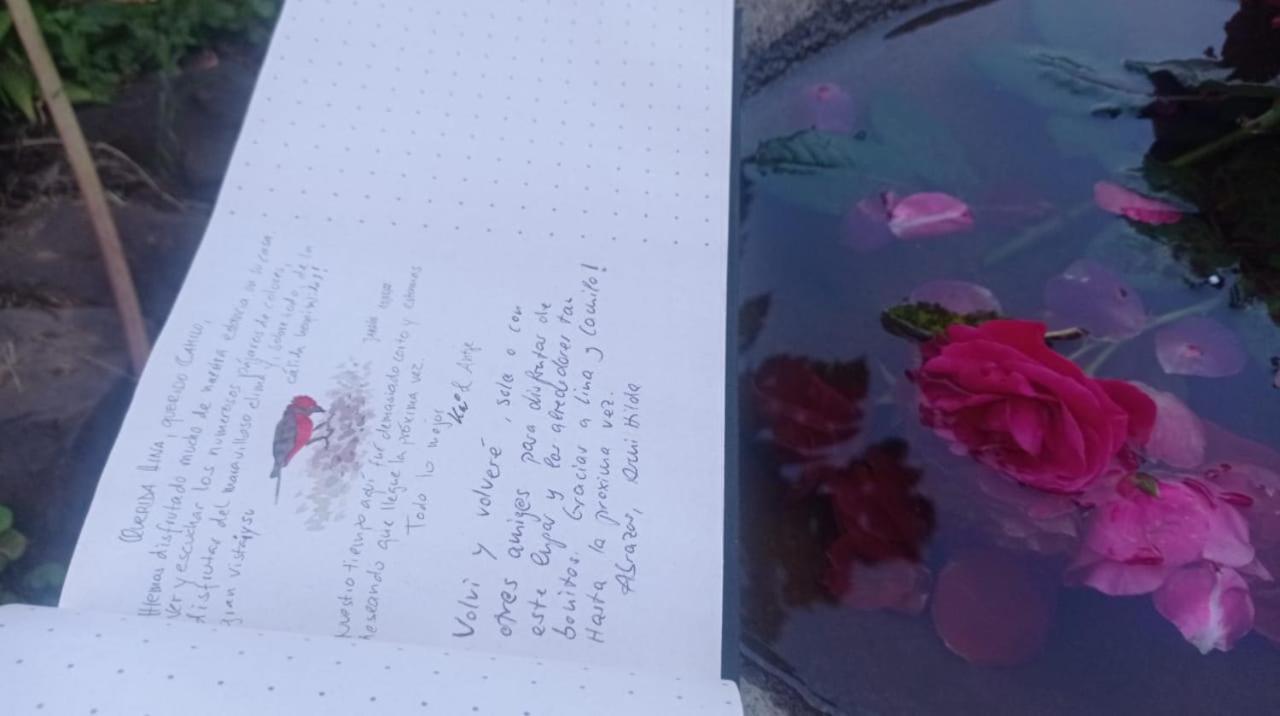 QUERIDA LINA, QUERIDO CAMILO,
Hemos disfrutado mucho de nuestra estancia en su casa
Ver y escuchar los numerosos pájaros de colores,
disfrutar del maravilloso clima y, sobre todo, de la
gran vista y su calida hospitalidad!
Nuestro tiempo aquí fue demasiado corto y estamos
deseando que llegue la próxima vez.
Todo lo mejor
Antje
Volví y volveré, sola o con
otres amigos para disfrutar de
este lugar y los alrededores tan
bonitos. Gracias a Lina y Camilo!
Hasta la proxima vez.
Abrazos, Hilda